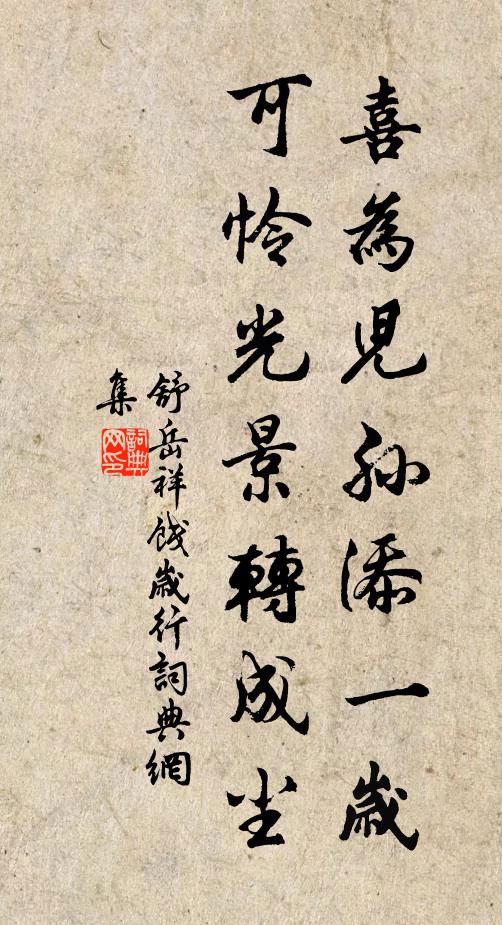 喜為兒孫添一歲
可憐光景轉成尘
舒岳祥餞歲行詞典網
集
詞典
网印